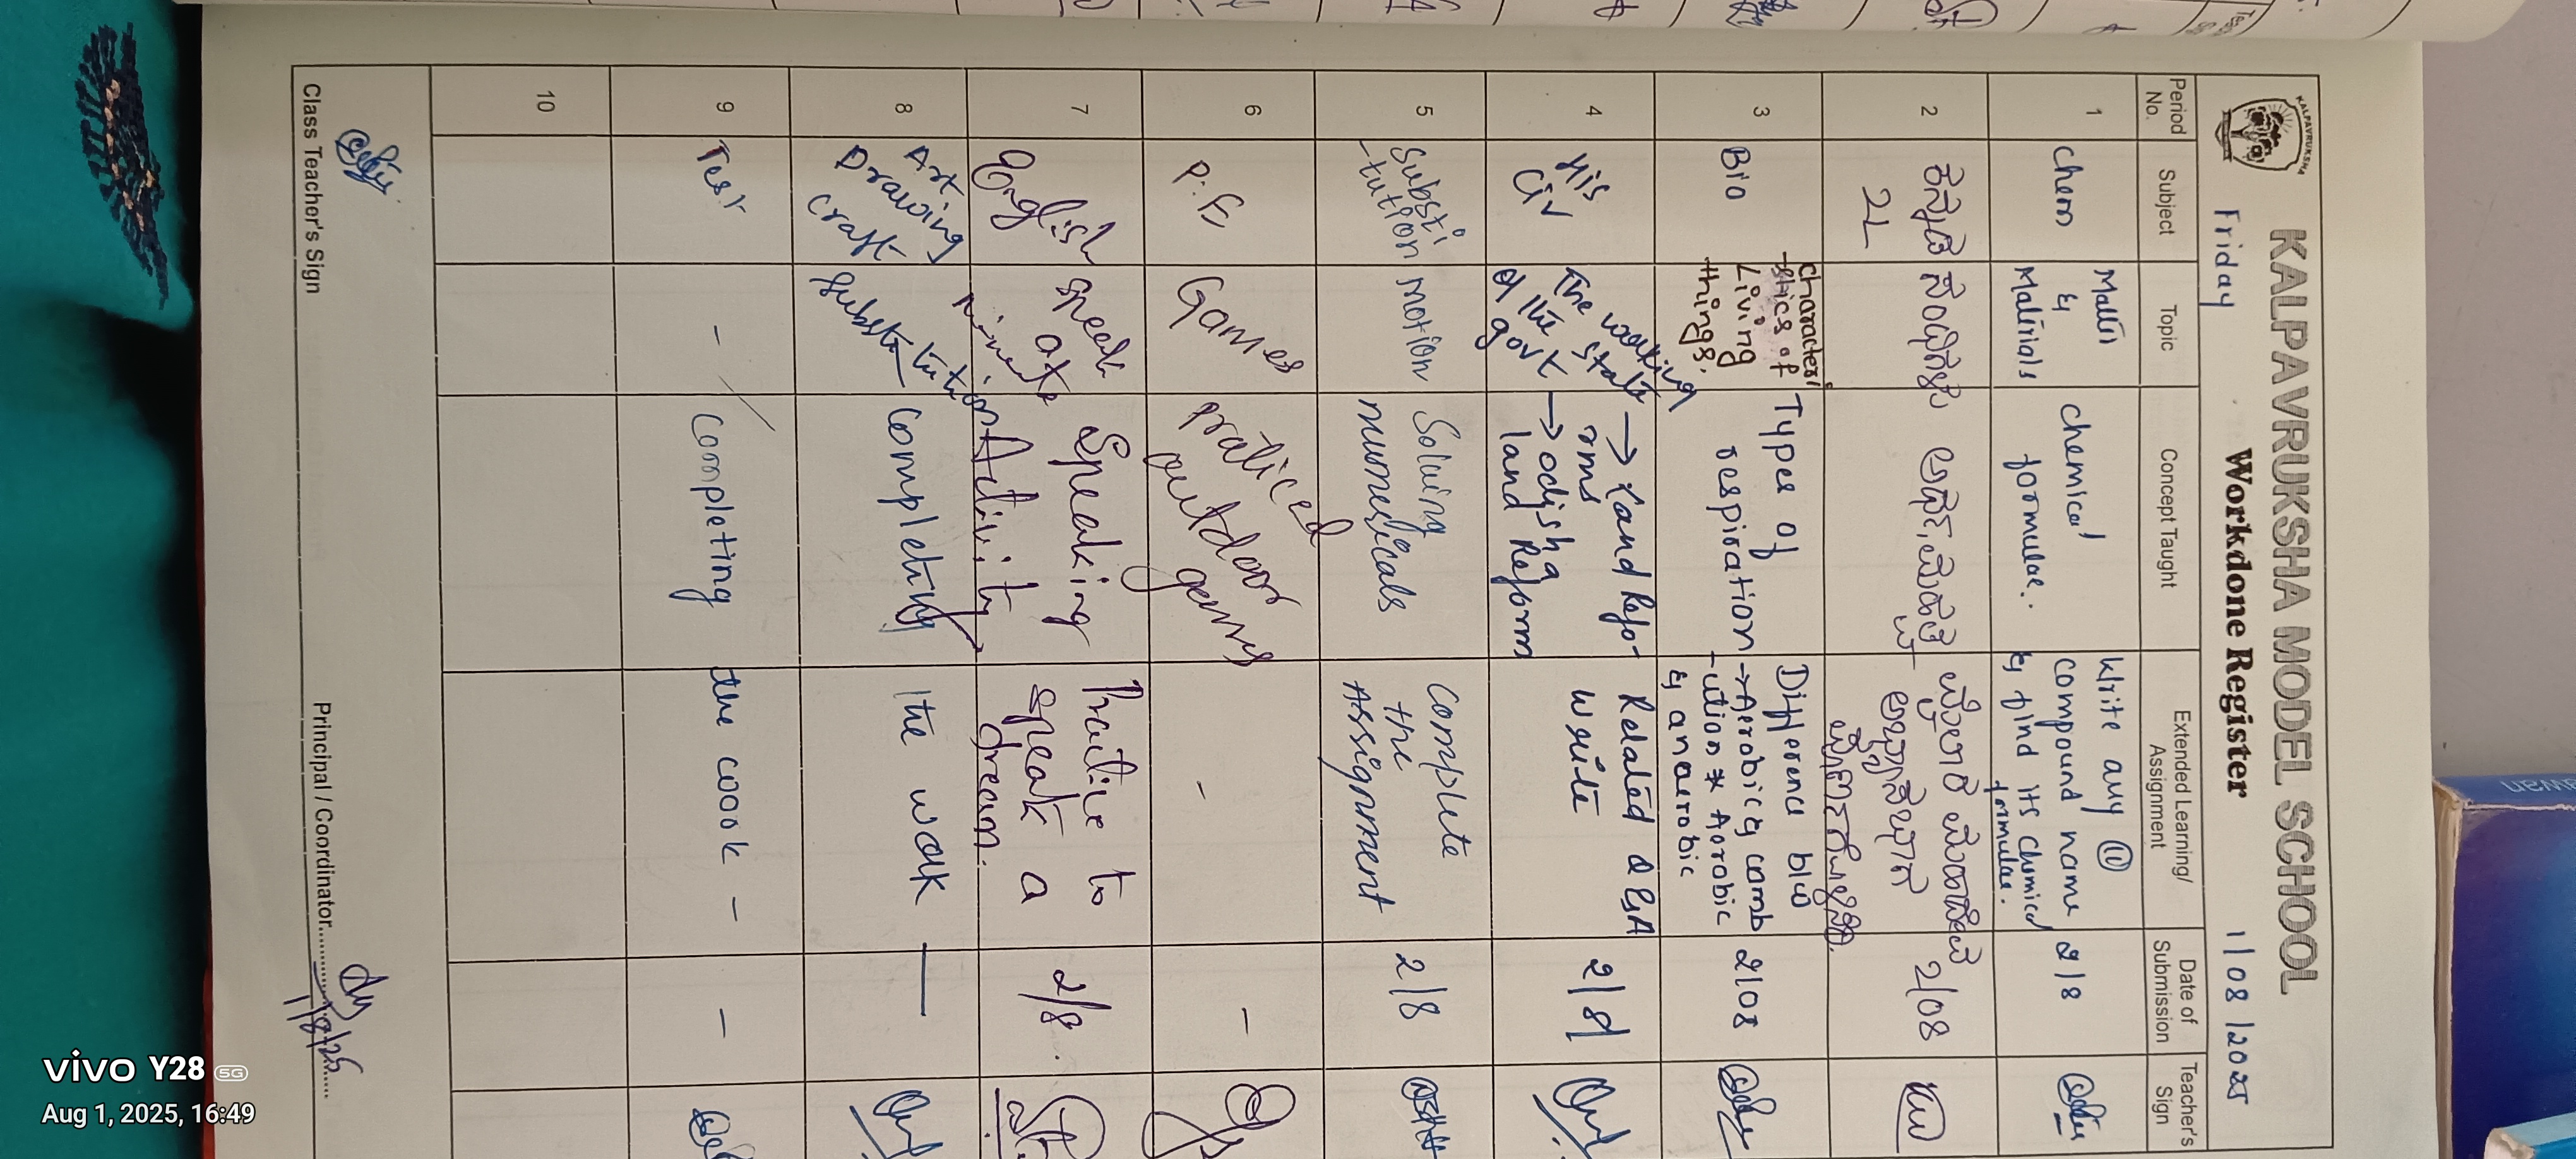 KALPAVRUKSHA
KALPAVRUKSHA MODEL SCHOOL
Friday
Workdone Register
1/08/2025
Period No.
Subject
Topic
Concept Taught
Extended Learning/ Assignment
Date of Submission
Teacher's Sign
1
Chem
Matter
&
Materials
chemical
formulae.
Write any ⑩
compound name
& find its chemical
formulae.
2/8
2
ಕನ್ನಡ
2L
ಸಂಧಿಗಳು
2/08
3
Bio
character
-stics of
Living
things.
Types of
respiration
Difference b/w
→Aerobic & comb
-ution * Aerobic
& anaerobic
2/08
4
His
Civ
The working
of the state
govt
→ Land Refo-
rms
→ odisha
land Reform
Related Q&A
write
2/8
5
Substi
-tution
motion
Solving
numericals
Complete
the
Assignment
2/8
6
P.E
Games
praticed
outdoor
gems
-
-
7
English
Speak
at a
minute
Speaking
Activity
Practice to
speak a
dream.
2/8.
8
Art
Drawing
craft
Substitution
Completing
the work
—
9
Test
-
Completing
the work -
-
10
Class Teacher's Sign
Principal / Coordinator
1/8/25
vivo Y28 5G
Aug 1, 2025, 16:49